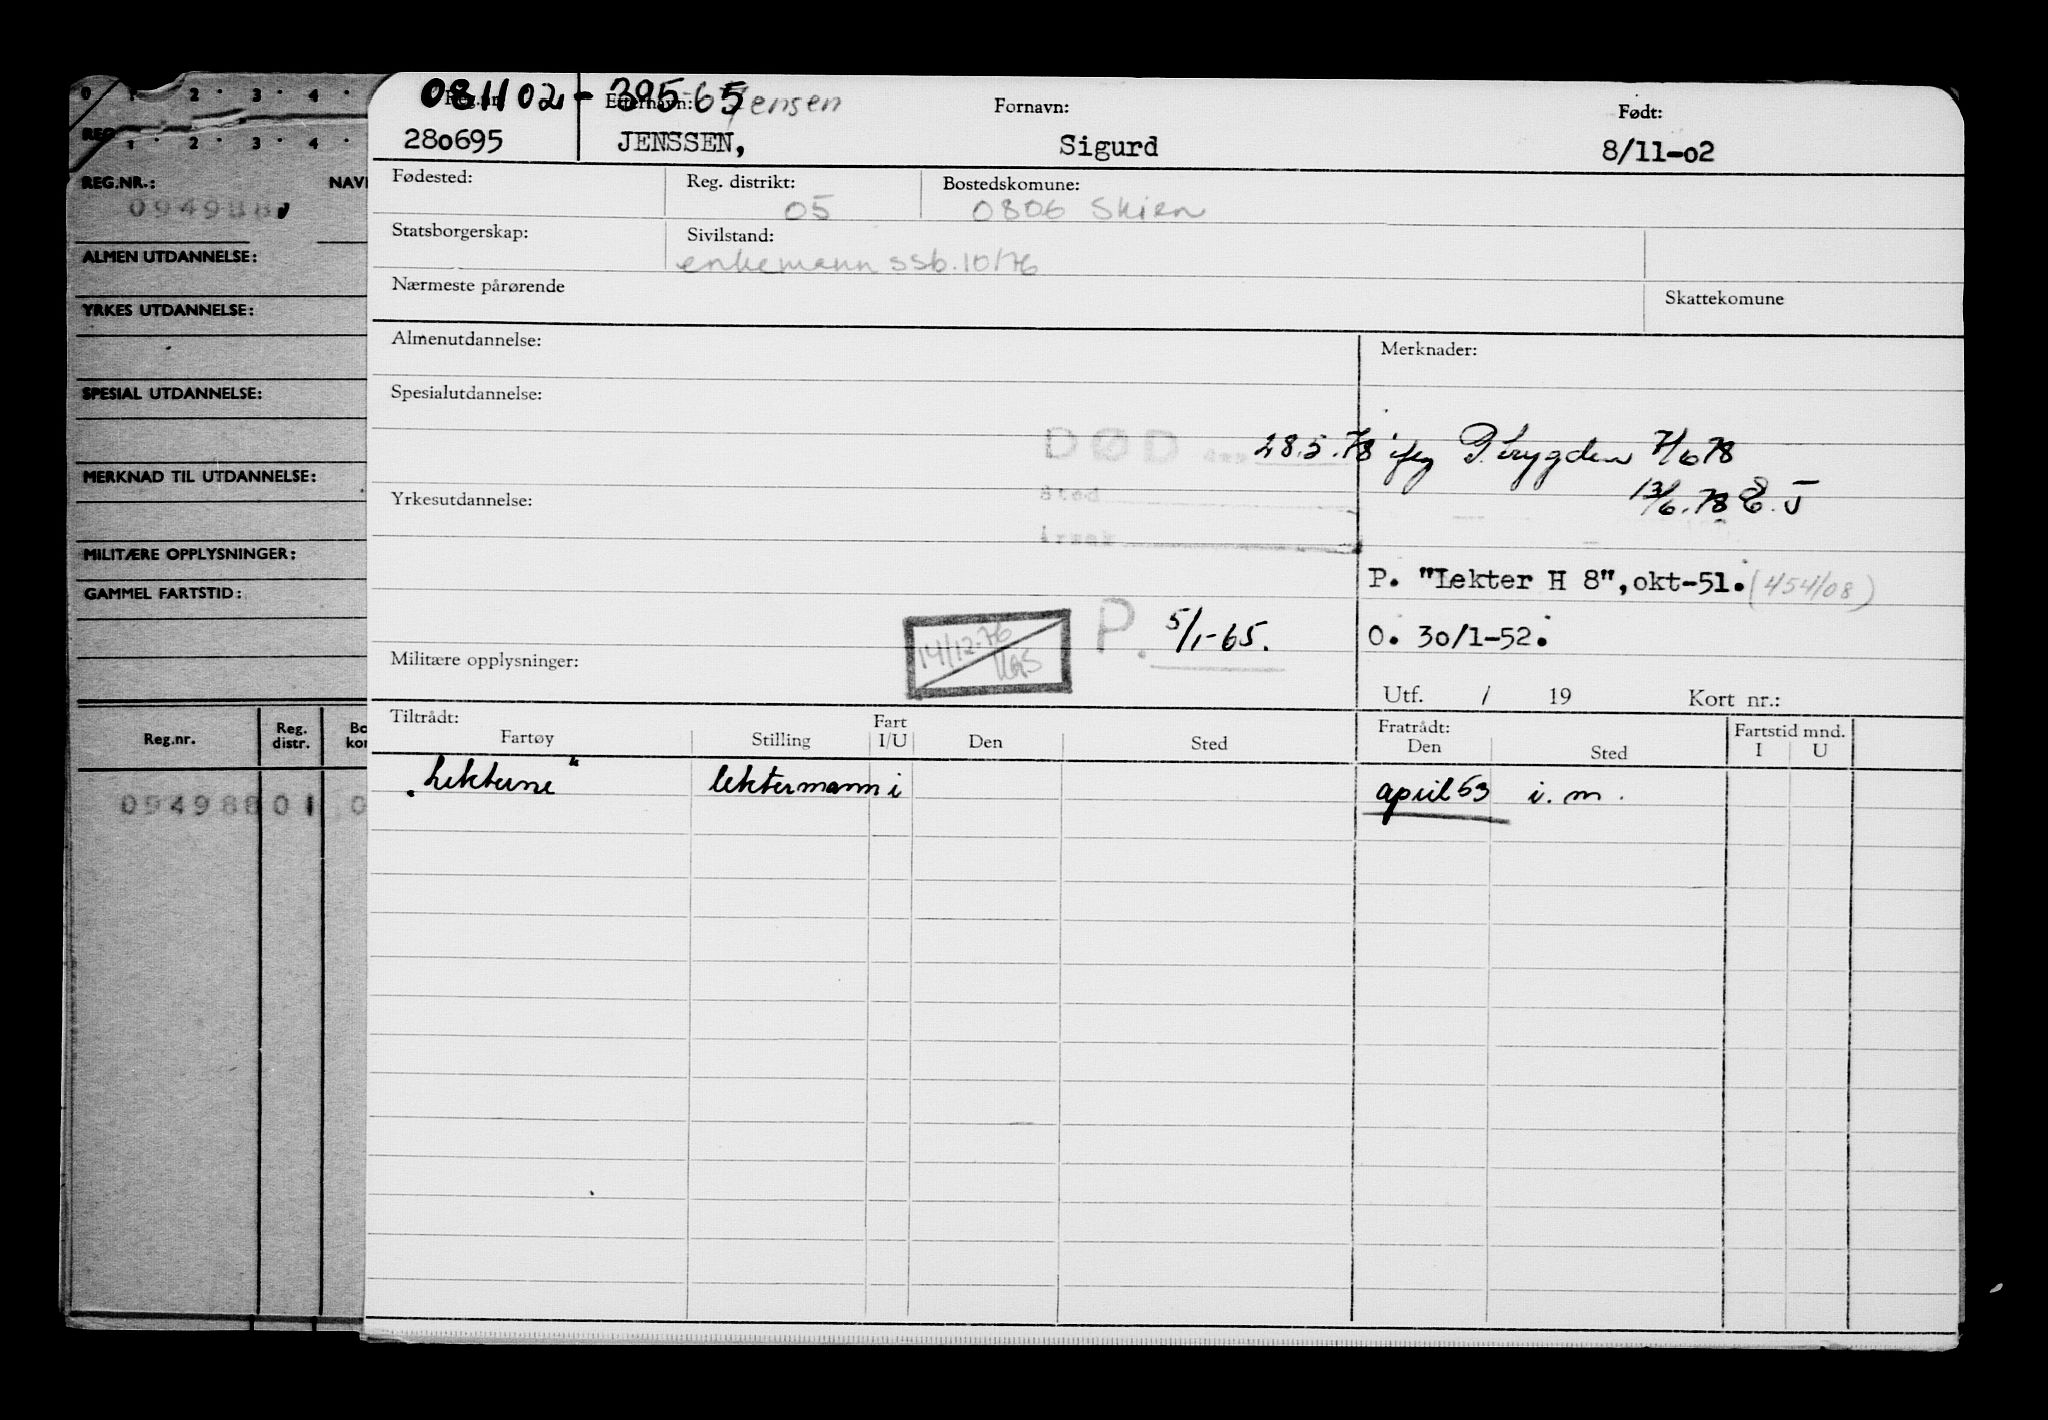 0 1 · 2 · 3 · 4 ·
REG
1 · 2 · 3 · 4 ·
REG.NR.: NAV
094988
ALMEN UTDANNELSE:
YRKES UTDANNELSE:
SPESIAL UTDANNELSE:
MERKNAD TIL UTDANNELSE:
MILITÆRE OPPLYSNINGER:
GAMMEL FARTSTID:
Reg.nr. Reg. distr. Bo kon
094988 01 0
081102 - 39565 Jensen
Reg.nr. Etternavn: Fornavn: Født:
280695 JENSSEN, Sigurd 8/11-02
Fødested: Reg. distrikt: Bostedskomune:
05 0806 Skien
Statsborgerskap: Sivilstand:
enkemann ssb. 10/76
Nærmeste pårørende Skattekomune
Almenutdannelse: Merknader:
Spesialutdannelse:
DØD den 28.5.78 ifg P.trygden 7/6 78
Sted 13/6.78 E.J
Yrkesutdannelse:
Årsak
P. "Lekter H 8", okt-51. (454/08)
14/12-76 P. 5/1-65. O. 30/1-52.
Militære opplysninger:
Utf. / 19 Kort nr.:
Tiltrådt: Fart Fratrådt: Fartstid mnd.
Fartøy Stilling I/U Den Sted Den Sted I U
"Lekterne" lektermann i april 53 i.m.